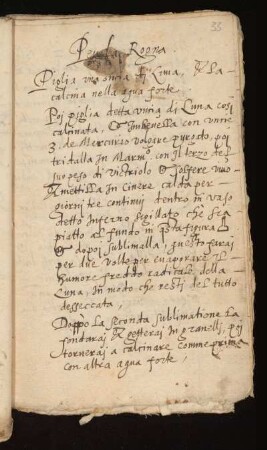 33
Per la Rogna
Piglia una oncia di Luna, & La
calcina nella agua forte
Poi piglia detta oncia di Luna cosi
calcinata, & imbenella con oncie
3. de Mercurio volgare purgato, poi
tridalla in Marm. con il terzo del
suo peso di Vietriolo & Solfere vivo
& mettilla in Cinere calda per
giorni tre continui dentro in vaso
detto Inferno sigillato che sea
piatto al fundo in questa figura
& dopoi sublimalla, questo farai
per due volte per evaporare il
humore freddo radicale della
Luna, in modo che resti del tutto
desseccata,
Doppo La seconda sublimatione La
fondarai & getterai In granelli, poi
tornerai a calcinare comme prima
con altra agua forte,